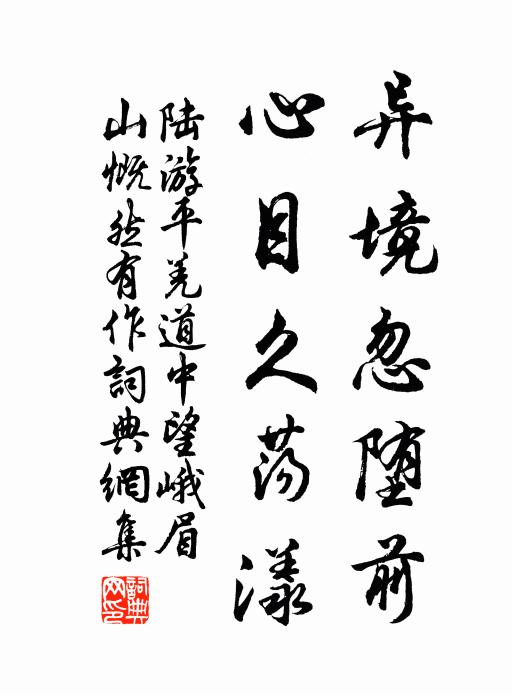 异境忽堕前
心目久荡漾
陆游平羌道中望峨眉
山慨然有作词典網集
詞典網印